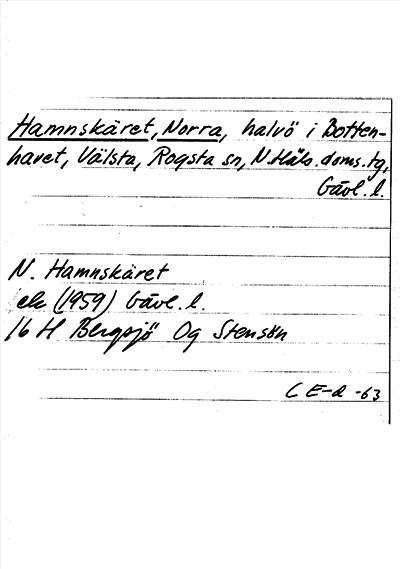 Hamnskäret, Norra, halvö i Botten-
havet, Välsta, Rogsta sn, N.Häls.doms.tg,
Gävl.l.
N. Hamnskäret
ek (1959) Gävl.l.
16 H Bergsjö Og Stensön
C E-d -63